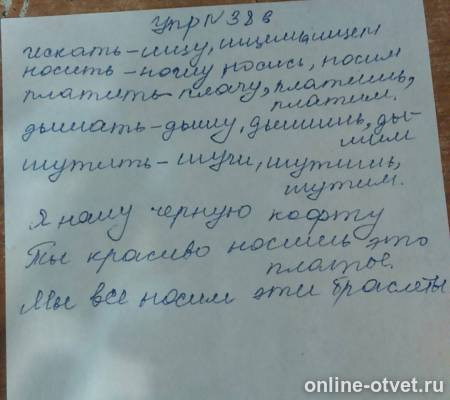 упр N 38 в
искать - ищу, ищешь, ищем
носить - ношу носишь, носим
платить - плачу, платишь,
платим.
дышать - дышу, дышишь, ды-
шим
шутить - шучу, шутишь,
шутим.
Я ношу черную кофту
Ты красиво носишь это
платье.
Мы все носим эти браслеты
online-otvet.ru